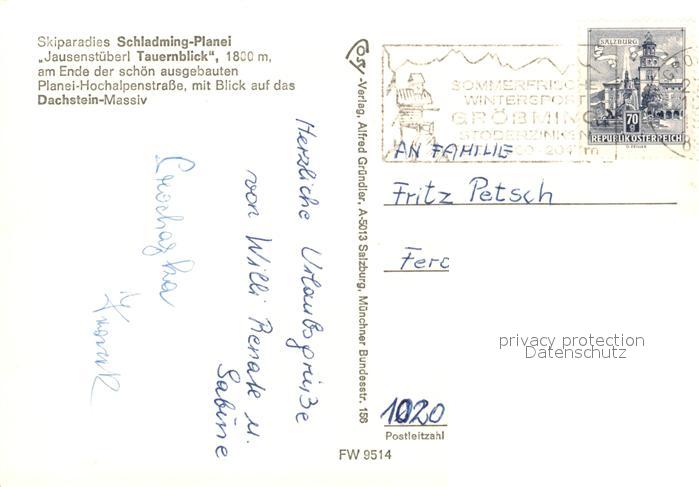 Skiparadies Schladming-Planei
„Jausenstüberl Tauernblick“, 1800 m,
am Ende der schön ausgebauten
Planei-Hochalpenstraße, mit Blick auf das
Dachstein-Massiv
Herzliche Urlaubsgrüße
von Willi Renate u.
Sabine
Cosy-Verlag, Alfred Gründler, A-5013 Salzburg, Münchner Bundesstr. 156
SOMMERFRISCHE
WINTERSPORT
GRÖBMING
STODERZINKEN
SALZBURG
70 g
REPUBLIK ÖSTERREICH
AN FAMILIE
Fritz Petsch
Ferc
privacy protection
Datenschutz
1020
Postleitzahl
FW 9514